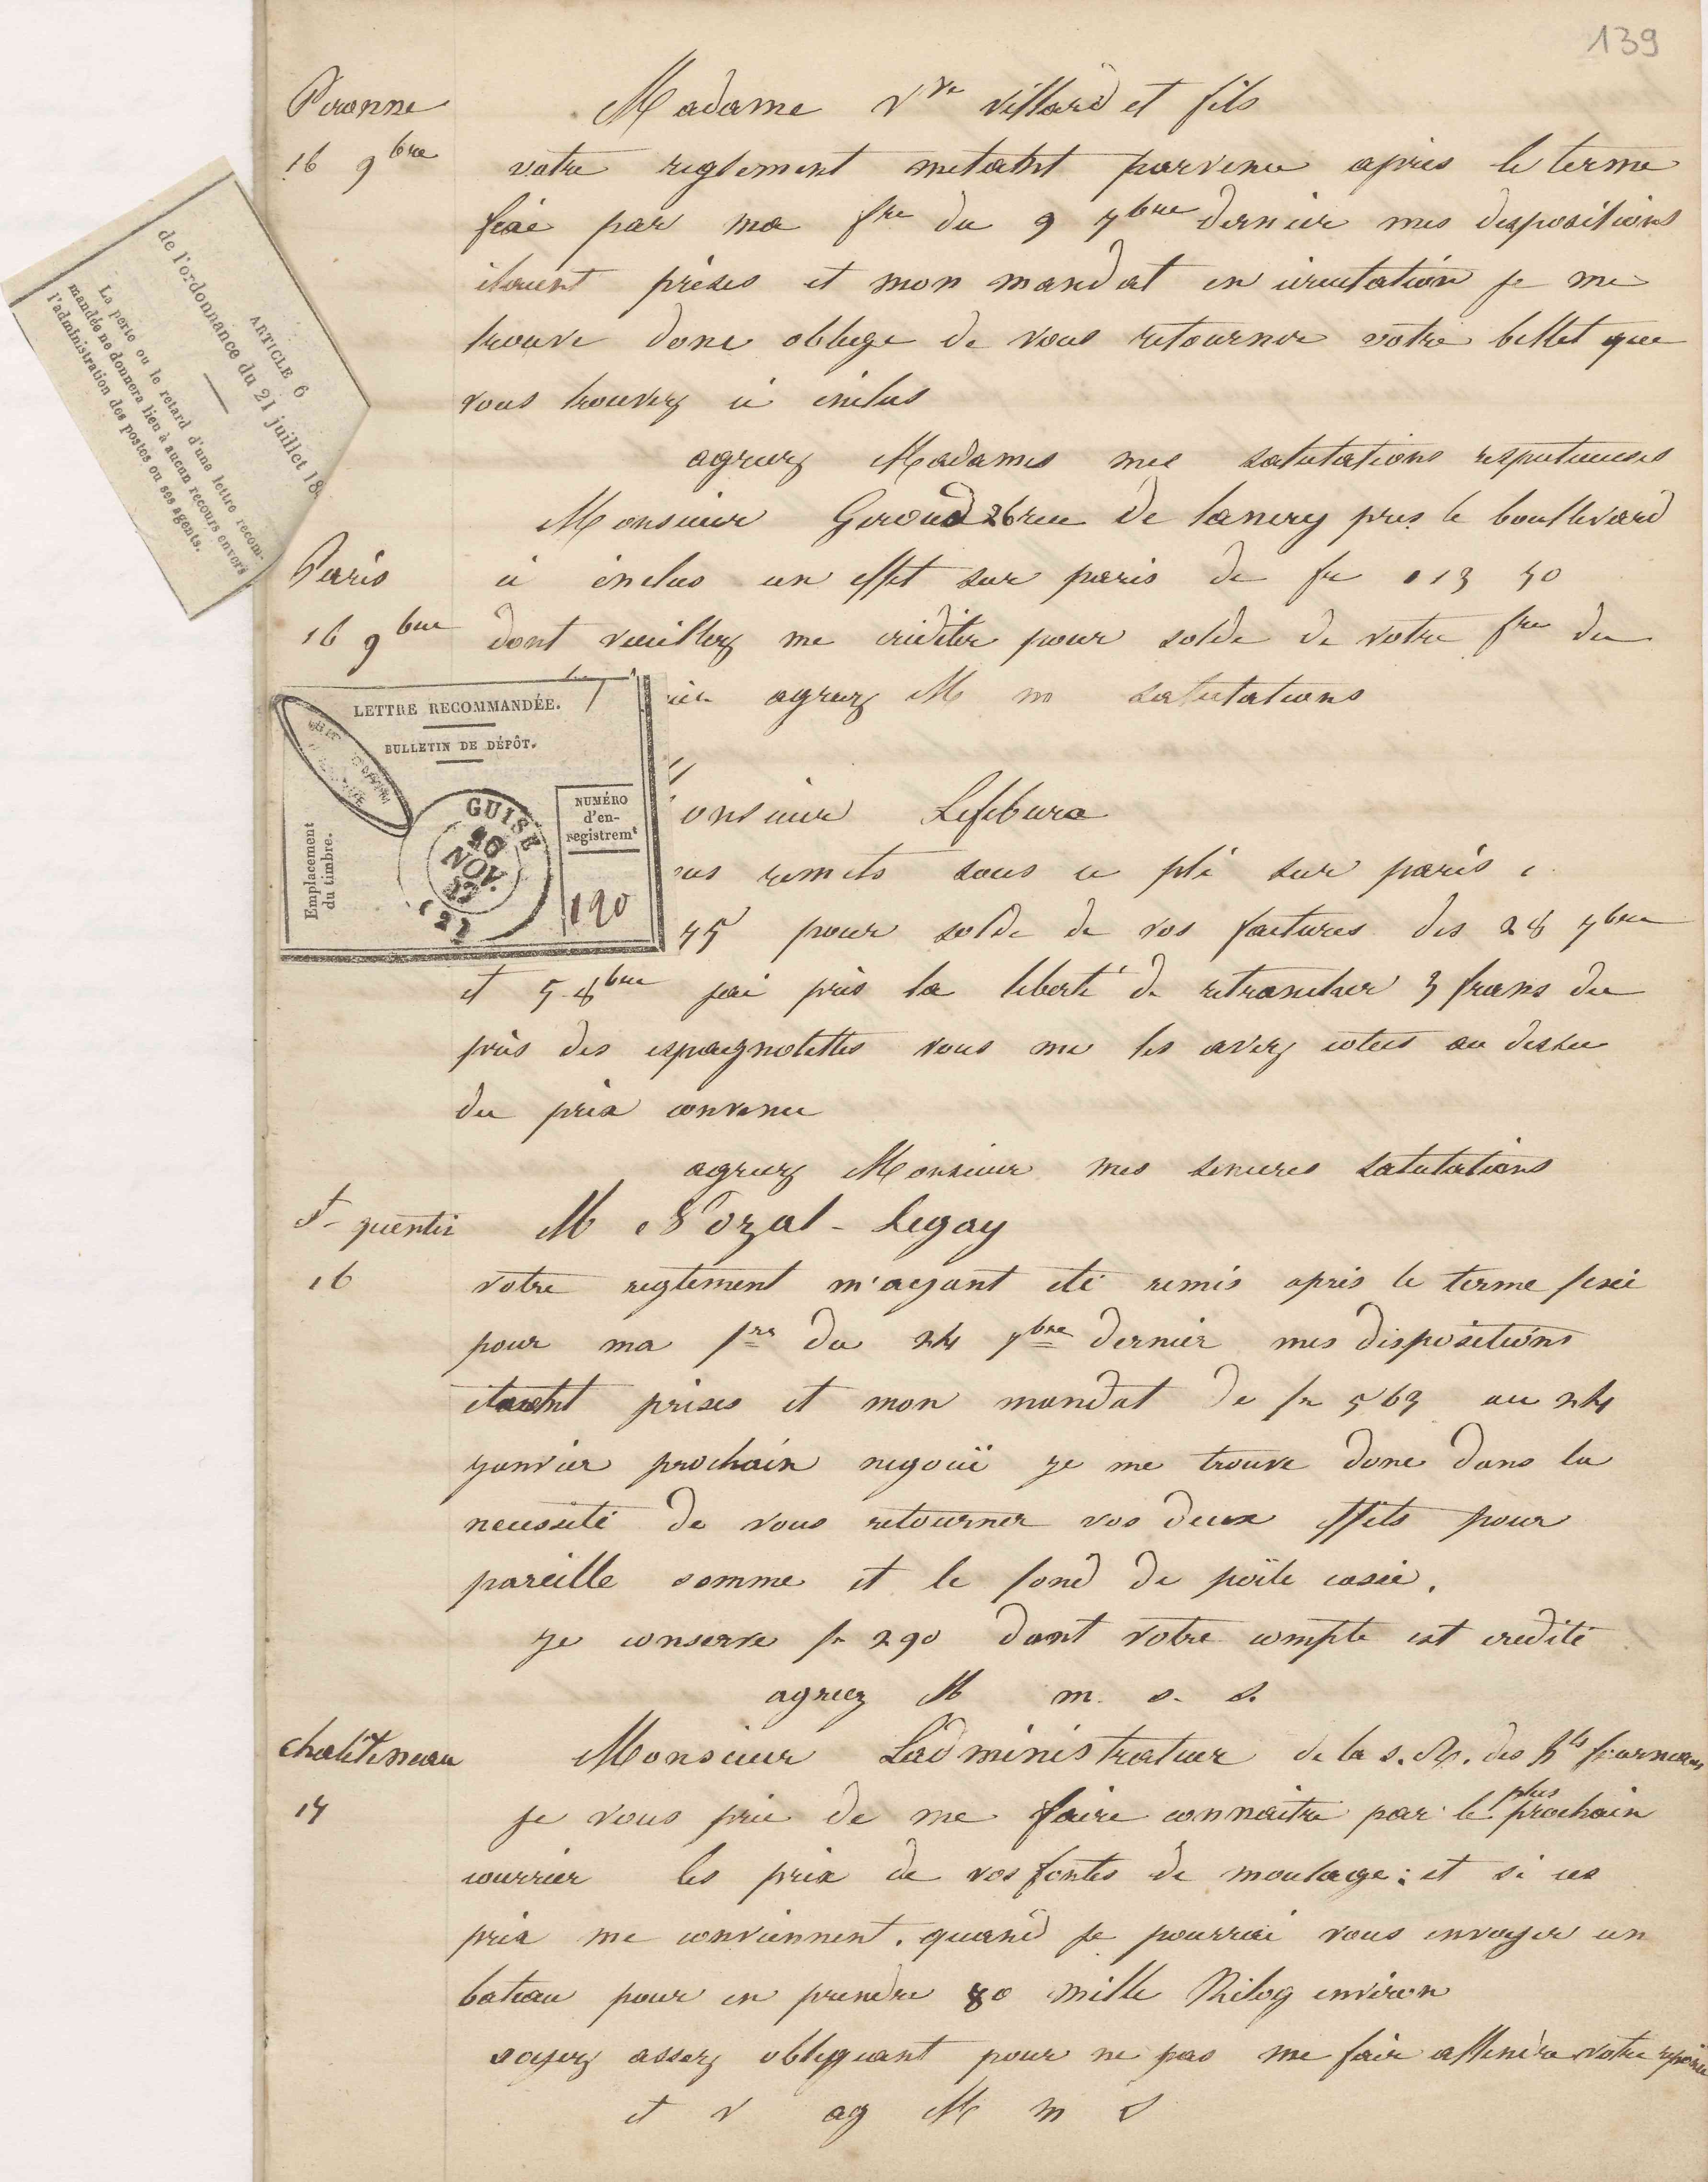 139
Peronne
Madame Vve Villard et fils
16 9bre
votre reglement metatnt parvenu apres le terme
fixé par ma fre du 9 7bre dernier mes dispositions
etaient prises et mon mandat en circulation je me
trouve donc obligé de vous retourner votre billet que
vous trouverz ci inclus
agreez Madames mes salutations respectueuses
Monsieur Geroud 26 rue de lancry pres le boullevard
Paris
ci inclus un effet sur paris de fr 113 50
16 9bre
dont veuillez me crediter pour solde de votre fre du
agreez M m salutations
onsieur Lefebure
ous remets sous ce pli sur paris
45 pour solde de vos factures des 28 7bre
et 5 8bre jai pris la liberté de retrancher 3 frans du
prix des espagnolettes vous me les avez cotees au dessu
du prix convenu
agreez Monsieur mes senceres salutations
St quentin
M Nozal-Legay
16
votre reglement m'ayant eté remis apres le terme fixé
pour ma fre du 24 7bre dernier mes dispositions
etaient prises et mon mandat de fr 563 au 24
janvier prochain negocié je me trouve donc dans la
necessité de vous retourner vos deux effets pour
pareille somme et le fond de poële cassé.
je conserve fr 290 dont votre compte est credité
agreez M m. s. s.
chatelineau
Monsieur Ladministrateur de la s. A. des hts fourneaux
17
je vous prie de me faire connaitre par le plus prochain
courrier les prix de vos fontes de moulage : et si ces
prix me conviennent. quand je pourrai vous envoyer un
bateau pour en prendre 80 mille Kilog environ
soyez assez obligeant pour ne pas me faire attendre votre reponse
et v ag M m s
ARTICLE 6
de l'ordonnance du 21 juillet 18
La perte ou le retard d'une lettre recom-
mandée ne donnera lieu à aucun recours envers
l'administration des postes ou ses agents.
LETTRE RECOMMANDÉE.
BULLETIN DE DÉPÔT.
Emplacement
du timbre.
GUISE
NOV.
(2)
NUMÉRO
d'en-
registremt
120